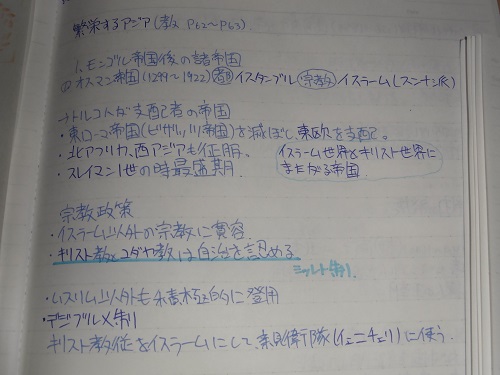 繁栄するアジア(教 P62〜P63)
1、モンゴル帝国後の諸帝国
① オスマン帝国(1299〜1922) 都 イスタンブル 宗教 イスラーム(スンナ派)
→トルコ人が支配者の帝国
・東ローマ帝国(ビザンツ帝国)を滅ぼし、東欧を支配。
・北アフリカ、西アジアも征服。
・スレイマン1世の時最盛期.
イスラーム世界とキリスト世界に
またがる帝国
宗教政策
・イスラーム以外の宗教に寛容.
・キリスト教とユダヤ教は自治を認める
ミッレト制.
・ムスリム以外も積極的に登用
・デヴシルメ制
キリスト教徒をイスラームにして、親衛隊(イェニチェリ)に使う.